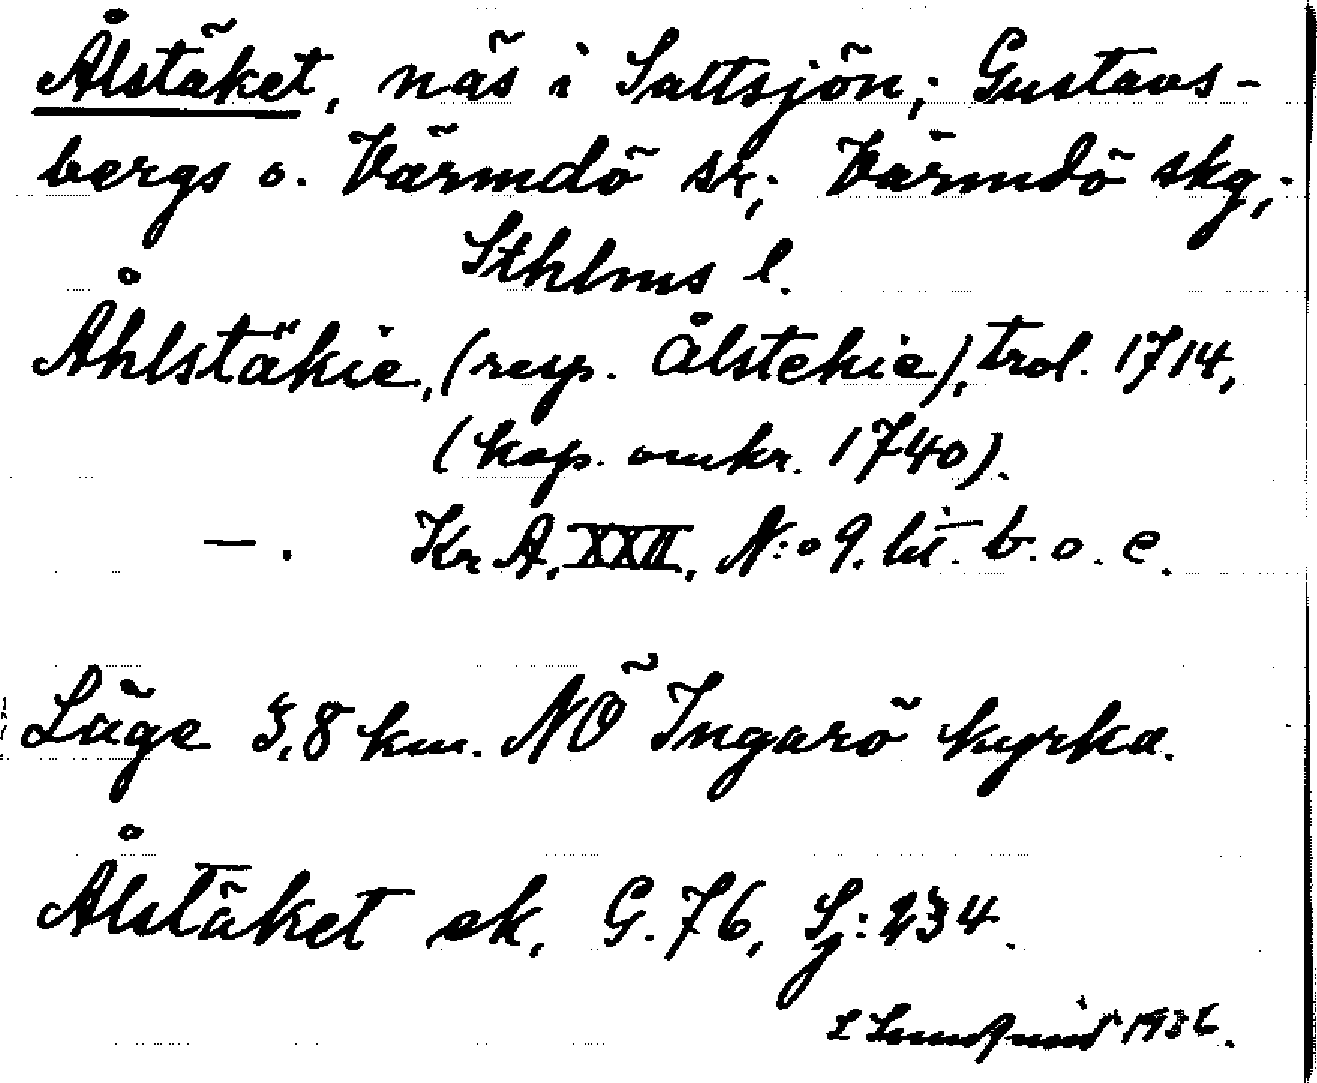 Ålstäket, näs i Saltsjön; Gustavs-
bergs o. Värmdö sr; Värmdö skg;
Sthlms l.
Åhlstäkie, (resp. Ålstekie), trol. 1714,
(kop. omkr. 1740).
—. Kr A. XXII. N:o 9. lit. b. o. c.
Läge 3,8 km. NÖ Ingarö kyrka.
Ålstäket ek, G. 76, Sj: 234.
L Lundquist 1936.